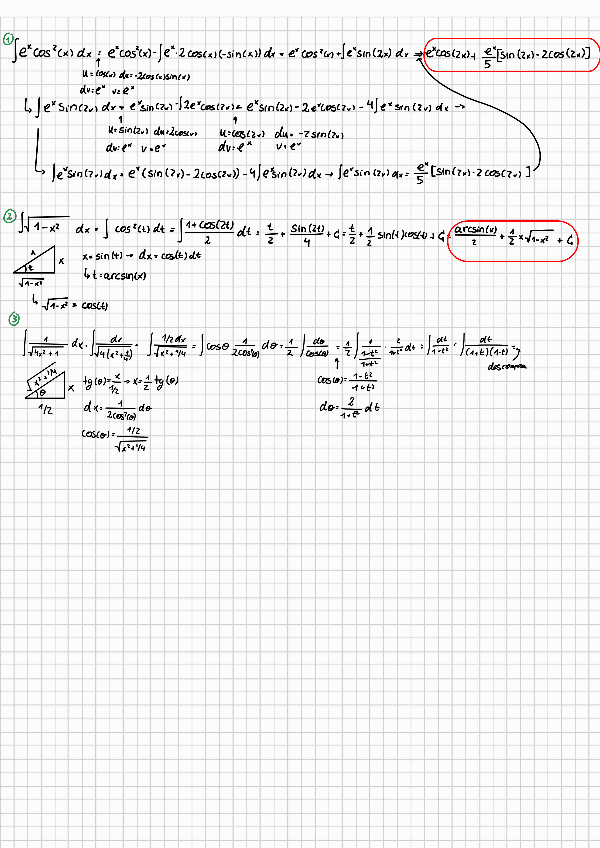 ① ∫e^x cos²(x) dx = e^x cos²(x) - ∫e^x · 2cos(x)(-sin(x)) dx = e^x cos²(x) + ∫e^x sin(2x) dx → e^x cos(2x) + e^x/5 [sin(2x) - 2cos(2x)]
u = cos²(x) du = -2cos(x)sin(x)
dv = e^x v = e^x
↳ ∫e^x sin(2x) dx = e^x sin(2x) - ∫2e^x cos(2x) = e^x sin(2x) - 2e^x cos(2x) - 4∫e^x sin(2x) dx →
u = sin(2x) du = 2cos(x) u = cos(2x) du = -2sin(2x)
dv = e^x v = e^x dv = e^x v = e^x
∫e^x sin(2x) dx = e^x (sin(2x) - 2cos(2x)) - 4∫e^x sin(2x) dx → ∫e^x sin(2x) dx = e^x/5 [sin(2x) - 2cos(2x)]
② ∫√(1-x²) dx = ∫cos²(t) dt = ∫(1+cos(2t))/2 dt = t/2 + sin(2t)/4 + C = t/2 + 1/2 sin(t)cos(t) + C = arcsin(x)/2 + 1/2 x√(1-x²) + C
1 x t √(1-x²)
x = sin(t) → dx = cos(t) dt
↳ t = arcsin(x)
↳ √(1-x²) = cos(t)
③ ∫1/√(4x²+1) dx = ∫dx/√(4(x²+1/4)) = ∫(1/2 dx)/√(x²+1/4) = ∫cosθ 1/(2cos²(θ)) dθ = 1/2 ∫dθ/cos(θ) = 1/2 ∫1/((1-t²)/(1+t²)) · 2/(1+t²) dt = ∫dt/(1-t²) = ∫dt/((1+t)(1-t)) =
√(x²+1/4) x θ 1/2
tg(θ) = x/(1/2) → x = 1/2 tg(θ)
cos(θ) = (1-t²)/(1+t²)
dx = 1/(2cos²(θ)) dθ
dθ = 2/(1+t²) dt
cos(θ) = (1/2)/√(x²+1/4)